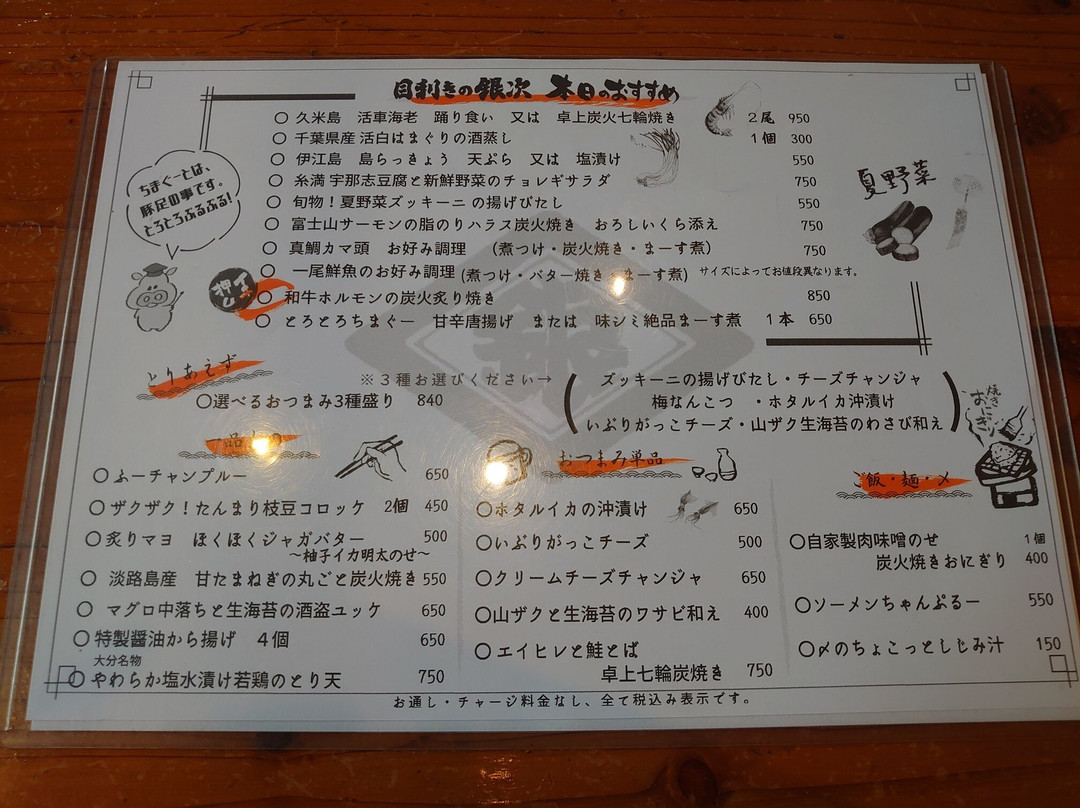 目利きの銀次 本日のおすすめ
○ 久米島 活車海老 踊り食い 又は 卓上炭火七輪焼き 2尾 950
○ 千葉県産 活白はまぐりの酒蒸し 1個 300
○ 伊江島 島らっきょう 天ぷら 又は 塩漬け 550
○ 糸満 宇那志豆腐と新鮮野菜のチョレギサラダ 750
○ 旬物!夏野菜ズッキーニの揚げびたし 550
○ 富士山サーモンの脂のりハラス炭火焼き おろしいくら添え 750
○ 真鯛カマ頭 お好み調理 (煮つけ・炭火焼き・まーす煮) 750
○ 一尾鮮魚のお好み調理 (煮つけ・バター焼き・まーす煮) サイズによってお値段異なります。
○ 和牛ホルモンの炭火炙り焼き 850
○ とろとろちまぐー 甘辛唐揚げ または 味シミ絶品まーす煮 1本 650
ちまぐーとは、
豚足の事です。
とろとろぷるぷる!
イチ
押し
夏野菜
銀
とりあえず
※3種お選びください→
○選べるおつまみ3種盛り 840
ズッキーニの揚げびたし・チーズチャンジャ
梅なんこつ ・ホタルイカ沖漬け
いぶりがっこチーズ・山ザク生海苔のわさび和え
一品
○ふーチャンプルー 650
○ザクザク!たんまり枝豆コロッケ 2個 450
○炙りマヨ ほくほくジャガバター 500
～柚子イカ明太のせ～
○ 淡路島産 甘たまねぎの丸ごと炭火焼き 550
○ マグロ中落ちと生海苔の酒盗ユッケ 650
○特製醤油から揚げ 4個 650
大分名物
○やわらか塩水漬け若鶏のとり天 750
おつまみ単品
○ホタルイカの沖漬け 650
○いぶりがっこチーズ 500
○クリームチーズチャンジャ 650
○山ザクと生海苔のワサビ和え 400
○エイヒレと鮭とば
卓上七輪炭焼き 750
焼き
おにぎり
ご飯・麺・〆
○自家製肉味噌のせ 1個
炭火焼きおにぎり 400
○ソーメンちゃんぷるー 550
○〆のちょこっとしじみ汁 150
お通し・チャージ料金なし、全て税込み表示です。